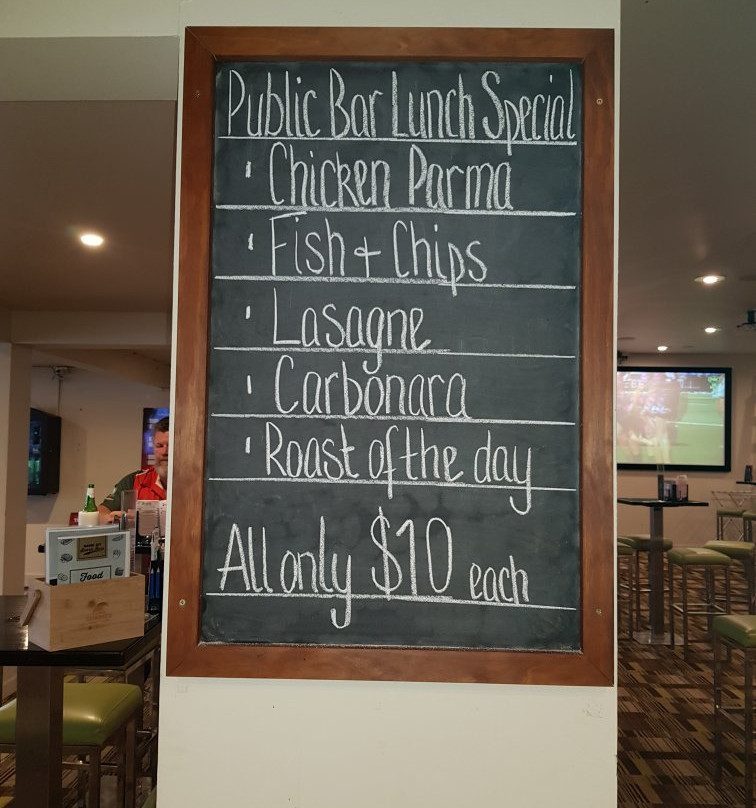 Public Bar Lunch Special
• Chicken Parma
• Fish + Chips
• Lasagne
• Carbonara
• Roast of the day
All only $10 each
Food